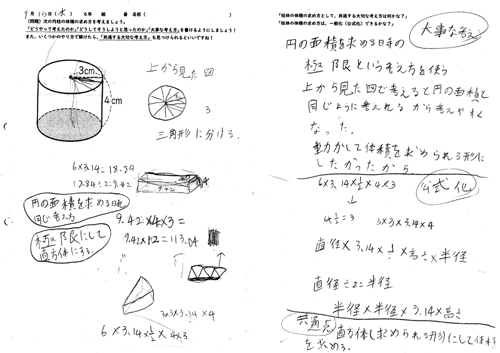 9月10日(水) 6年 組 番 名前( )
(問題)次の円柱の体積の求め方を考えましょう。
「どうやって考えたのか」「どうしてそうしようと思ったのか」「大事な考え方」を書けるようにしましょう!
また、いくつかのやり方で解けたら、「共通する大切な考え方」も見つけられるといいですね!
3cm
4cm
上から見た図
3
三角形に分ける。
6×3.14=18.84
18.84÷2=9.42
9.42
円の面積を求める時と
同じ考え方
9.42×4×3=
9.42×12=113.04
極限にして
直方体にする
3×3×3.14×4
6×3.14×½×4×3
「柱体の体積の求め方として、共通する大切な考え方は何かな?」
「柱体の体積の求め方は、一般化(公式化)できるかな?」
大事な考え
円の面積を求める時の
極限という考え方を使う
上から見た図で考えると円の面積と
同じように考えれるから考えやすく
なった。
動かして体積を求められる形に
したかったから
6×3.14×½×4×3
公式化
3×3×3.14×4
直径×3.14×½×高さ×半径
直径÷2=半径
半径×半径×3.14×高さ
共通点
直方体し求められる形にして体積
を求める。